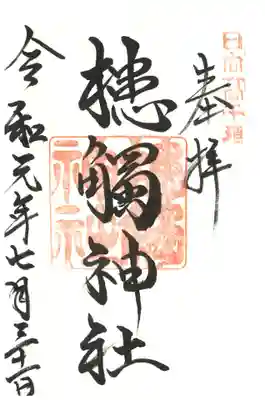 奉拝
槵觸神社
令和元年七月三十一日